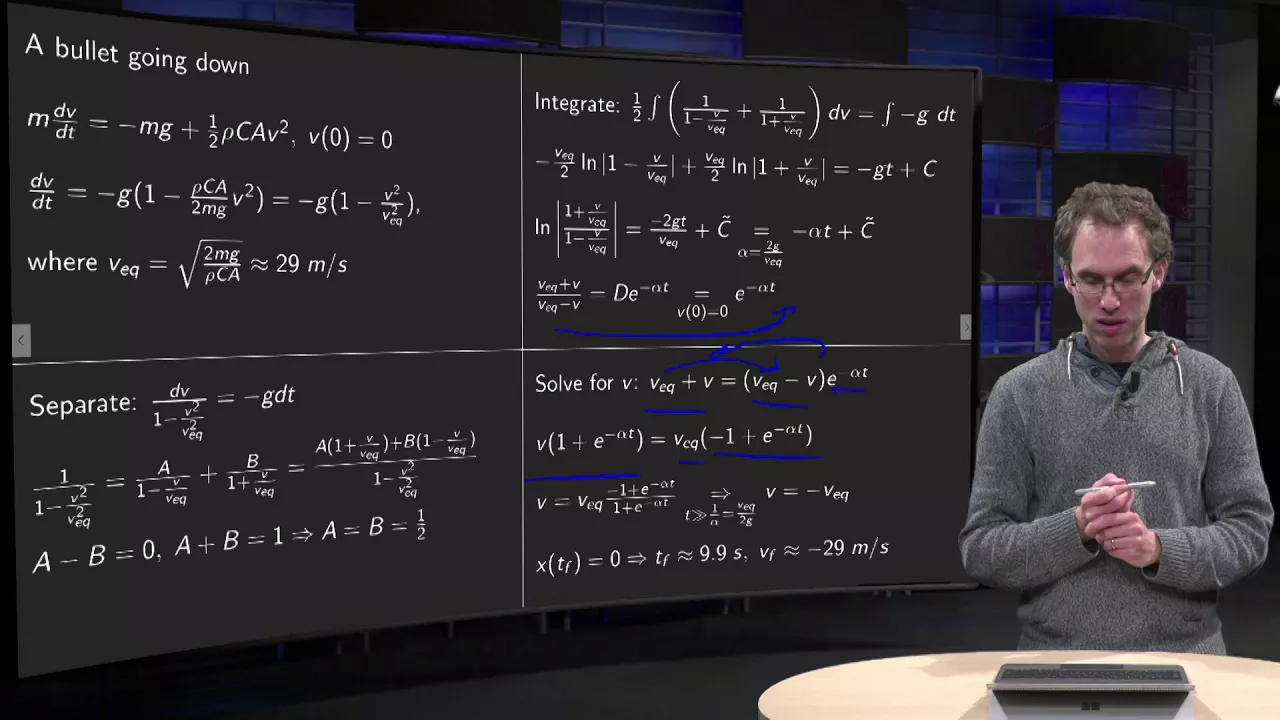 A bullet going down
m dv/dt = −mg + ½ρCAv², v(0) = 0
dv/dt = −g(1 − ρCA/2mg v²) = −g(1 − v²/v²_eq),
where v_eq = √(2mg/ρCA) ≈ 29 m/s
Separate: dv/(1 − v²/v²_eq) = −gdt
1/(1 − v²/v²_eq) = A/(1 − v/v_eq) + B/(1 + v/v_eq) = (A(1 + v/v_eq) + B(1 − v/v_eq))/(1 − v²/v²_eq)
A − B = 0, A + B = 1 ⇒ A = B = ½
Integrate: ½ ∫ (1/(1 − v/v_eq) + 1/(1 + v/v_eq)) dv = ∫ −g dt
−v_eq/2 ln|1 − v/v_eq| + v_eq/2 ln|1 + v/v_eq| = −gt + C
ln|(1 + v/v_eq)/(1 − v/v_eq)| = −2gt/v_eq + C̃ =_{α = 2g/v_eq} −αt + C̃
(v_eq + v)/(v_eq − v) = De^{−αt} =_{v(0)=0} e^{−αt}
Solve for v: v_eq + v = (v_eq − v)e^{−αt}
v(1 + e^{−αt}) = v_eq(−1 + e^{−αt})
v = v_eq (−1 + e^{−αt})/(1 + e^{−αt}) ⇒_{t ≫ 1/α = v_eq/2g} v = −v_eq
x(t_f) = 0 ⇒ t_f ≈ 9.9 s, v_f ≈ −29 m/s